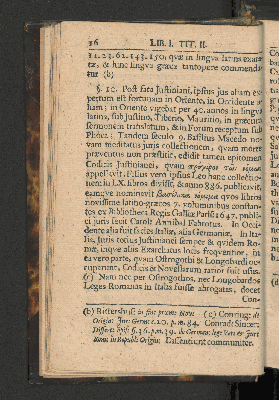 36 LIB. I. TIT. II.
31. 23. 62. 143. 150. quæ in lingua latina exara-
tæ, & hinc lingua græca tantopere commenda-
tur (b)
§. 10. Post fata Justiniani, ipsius jus aliam ex-
pertum est fortunam in Oriente, in Occidente a-
liam; in Oriente viguit per 40. annos in lingua
latina, sub Justino, Tiberio, Mauritio, in græcum
sermonem translatum, & in Forum receptum sub
Phoca; Tandem seculo 9. Basilius Macedo no-
vam meditatus juris collectionem, quam morte
præventus non præstitit, edidit tamen epitomen
Codicis Justinianei, quam
appellavit, filius vero ipsius Leo hanc collectio-
nem in LX. libros divisit, & anno 886. publicavit,
eamque nominavit quos libros
novissime latino-græcos 7. voluminibus constan-
tes ex Bibliotheca Regis Galliæ Parisi 1647. publi-
ci juris fecit Carol. Annibal Fabrotus. In Occi-
dente alia fuit facies Italiæ, alia Germaniæ. In Ita-
lia, juris textus Justinianei semper & quidem Ro-
mæ, inque aliis Exarchatus locis frequenter, in
ea vero parte, quam Ostrogothi & Longobardi oc-
cuperunt, Codicis et Novellarum rarior fuit usus.
(c) Nam nec per Ostrogothos, nec Longobardos
Leges Romanas in Italia fuisse abrogatas, docet
Con-
(b) Rittershus. in (c) Conring. de
Origin. Jur. Germ. c. 20. p. m. 84. Conradi Sincer.
§. 36. p. m. 39. de German. lege
Rom. in Republ. Origin. Dissentiunt communiter.